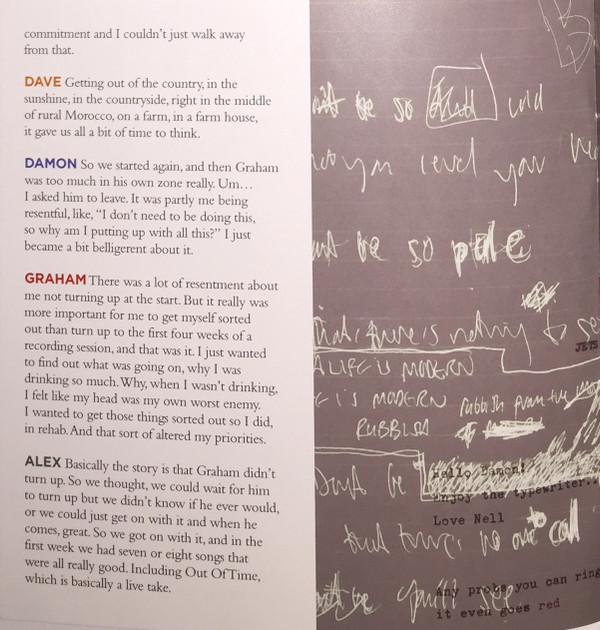 commitment and I couldn't just walk away
from that.
DAVE Getting out of the country, in the
sunshine, in the countryside, right in the middle
of rural Morocco, on a farm, in a farm house,
it gave us all a bit of time to think.
DAMON So we started again, and then Graham
was too much in his own zone really. Um…
I asked him to leave. It was partly me being
resentful, like, "I don't need to be doing this,
so why am I putting up with all this?" I just
became a bit belligerent about it.
GRAHAM There was a lot of resentment about
me not turning up at the start. But it really was
more important for me to get myself sorted
out than turn up to the first four weeks of a
recording session, and that was it. I just wanted
to find out what was going on, why I was
drinking so much. Why, when I wasn't drinking,
I felt like my head was my own worst enemy.
I wanted to get those things sorted out so I did,
in rehab. And that sort of altered my priorities.
ALEX Basically the story is that Graham didn't
turn up. So we thought, we could wait for him
to turn up but we didn't know if he ever would,
or we could just get on with it and when he
comes, great. So we got on with it, and in the
first week we had seven or eight songs that
were all really good. Including Out Of Time,
which is basically a live take.
B
be so
you
be so pale
there is nothing to
JETS
A LIFE IS MODERN
IS MODERN rubbish from the
RUBBISH
be
Hello Damon!
Enjoy the typewriter..
Love Nell
but
be
Any probs you can ring
it even goes red